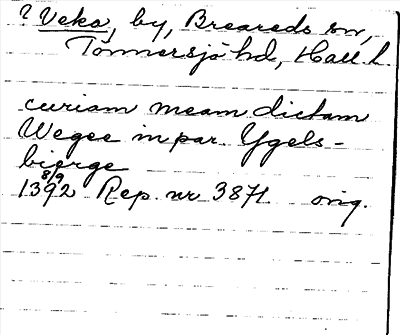 ? Veka, by, Breareds sn,
Tönnersjö hd, Hall. l.
curiam meam dictam
Wegee in par. Ygels-
bierge
8/9
1392 Rep. nr 3871 orig.